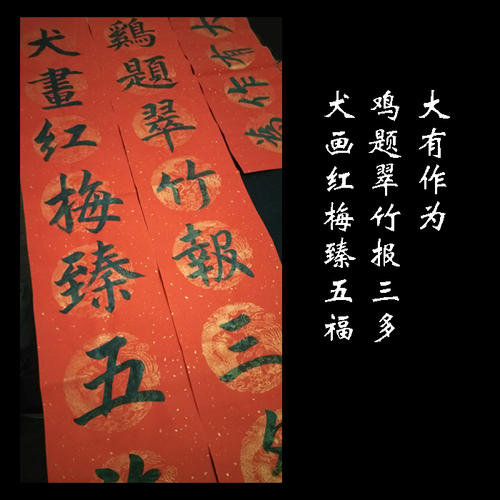 大有作为
鸡题翠竹报三多
犬画红梅臻五福
大有作為
鷄題翠竹報三多
犬畫紅梅臻五